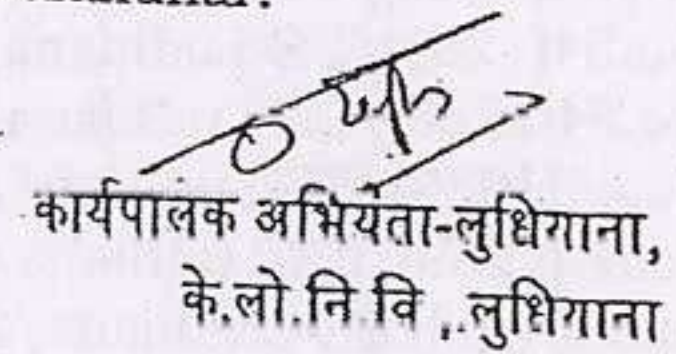 कार्यपालक अभियंता-लुधिगाना,
के.लो.नि.वि ,.लुधिगाना